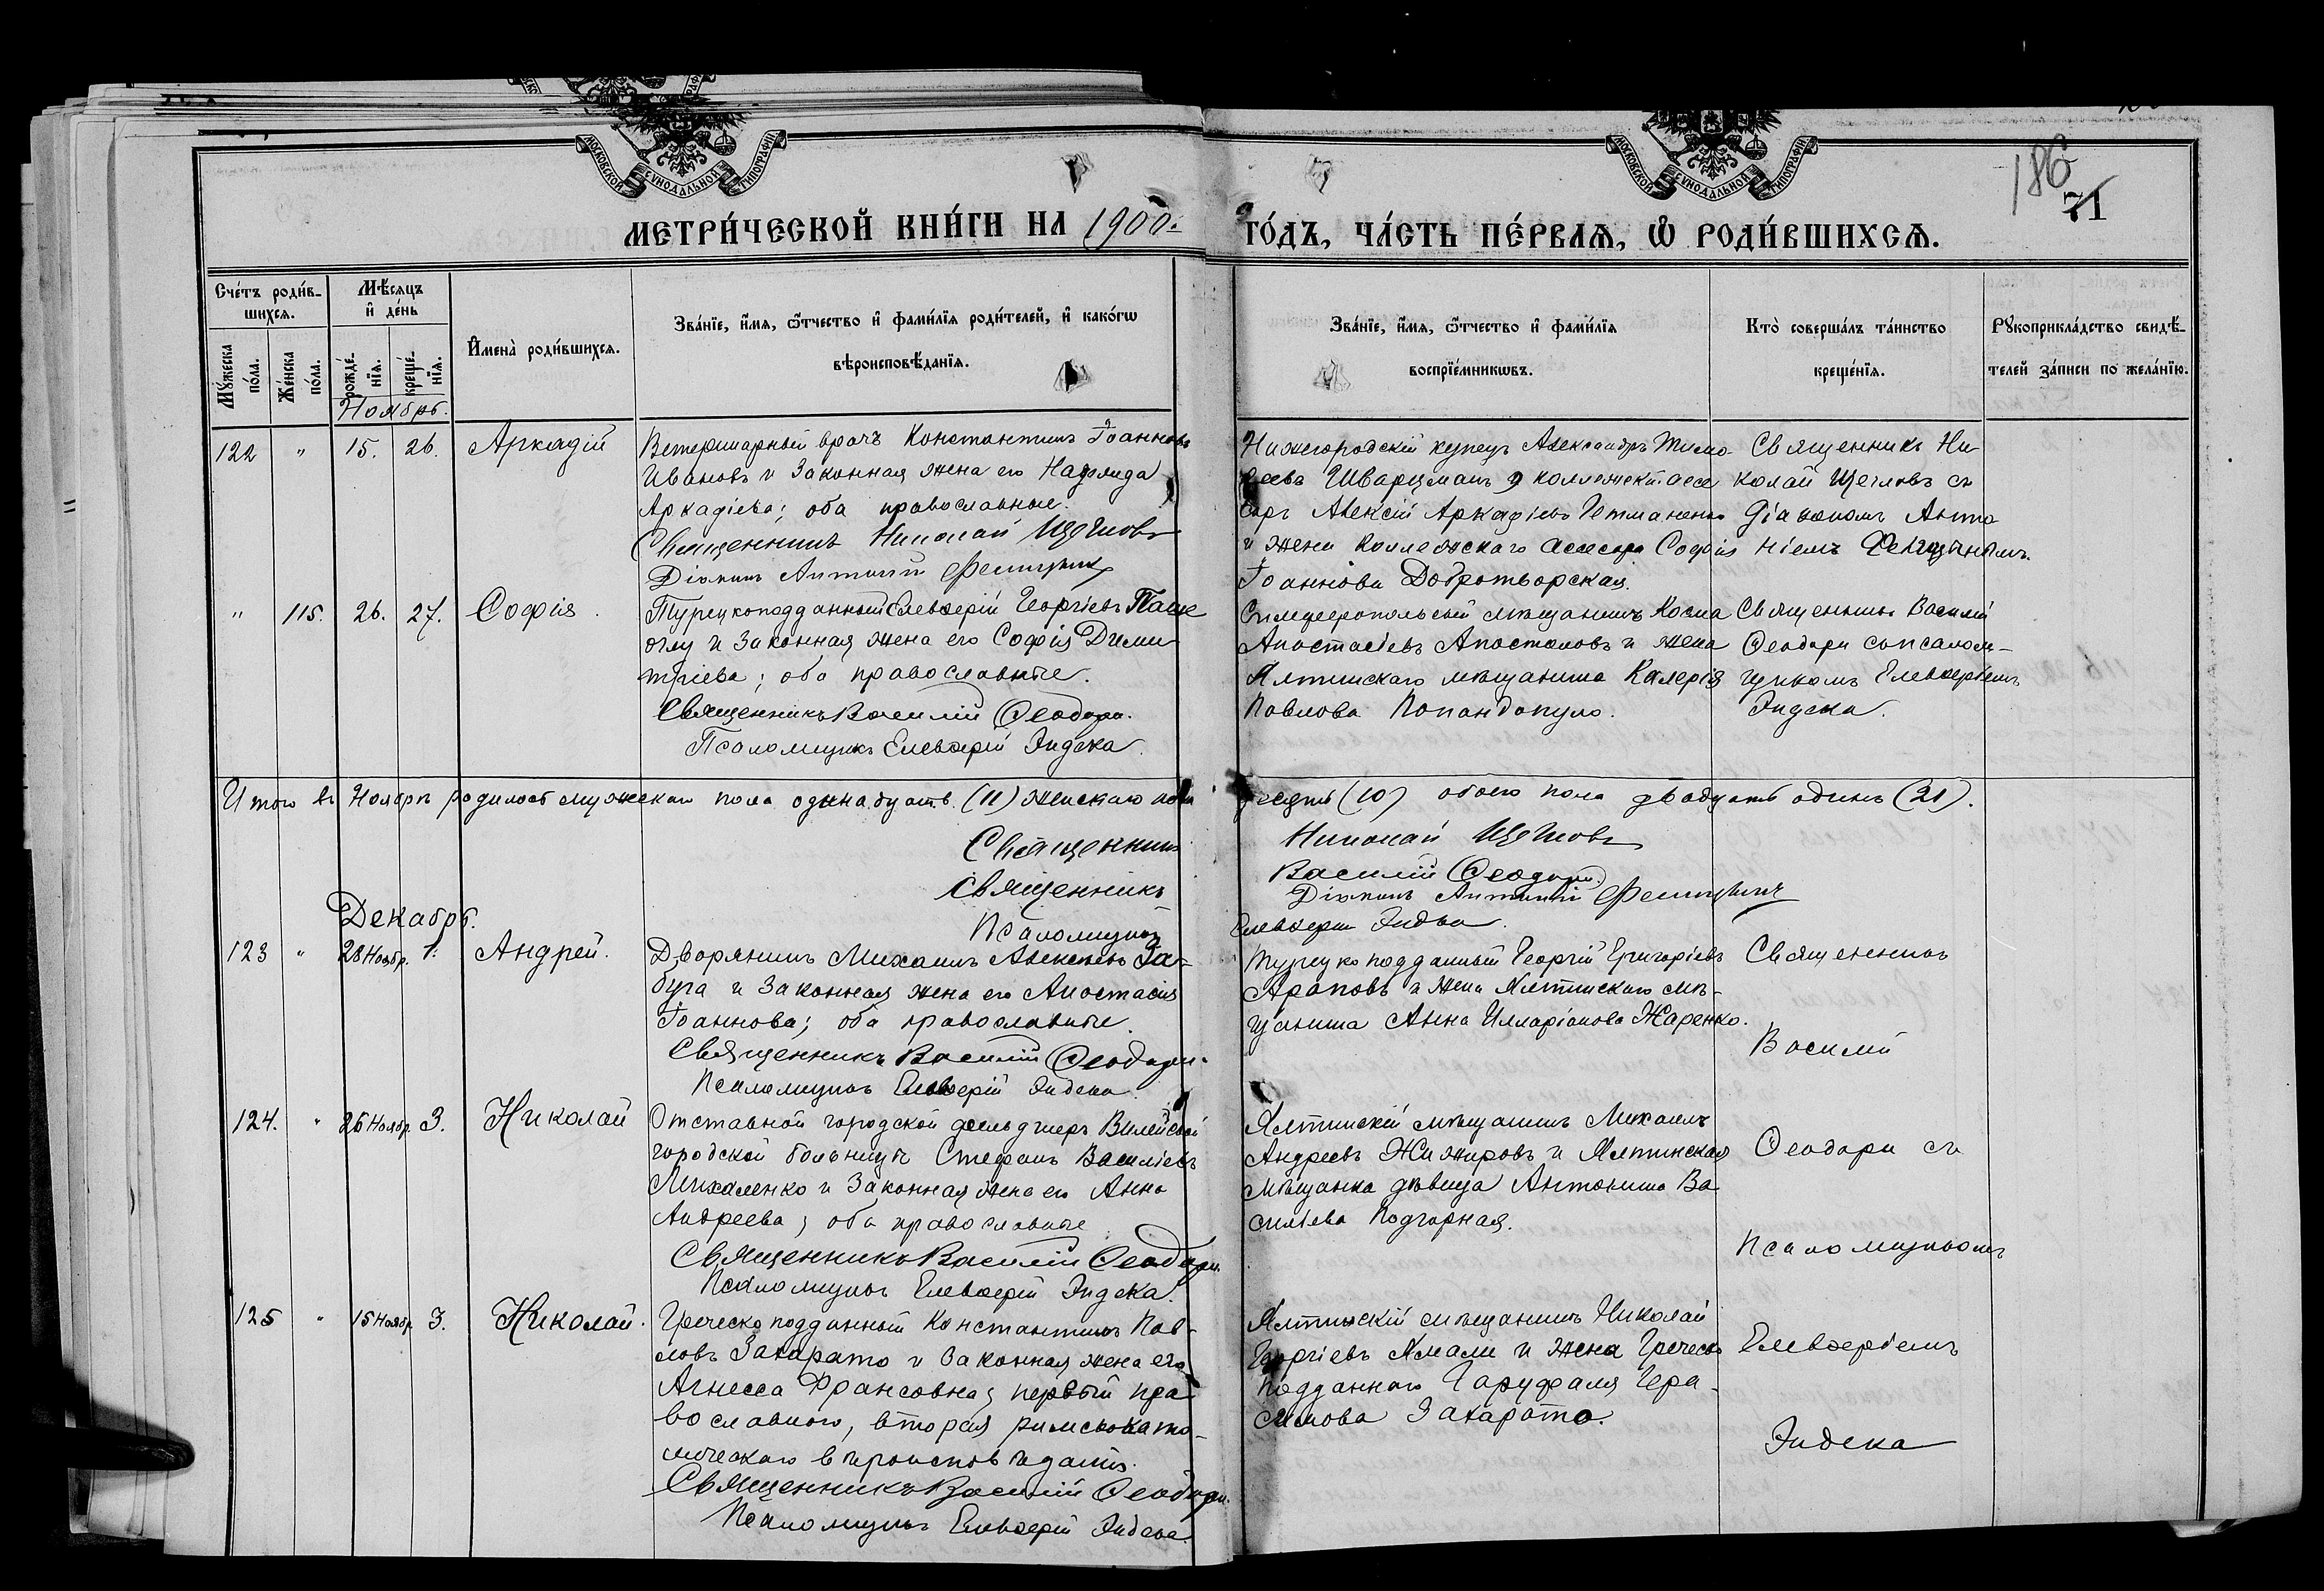 МОСКОВСКОЙ СУНОДАЛЬНОЙ ТИПОГРАФІИ
МОСКОВСКОЙ СУНОДАЛЬНОЙ ТИПОГРАФІИ
186
71
МЕТРИ́ЧЕСКОЙ КНИ́ГИ НА 1900.
ГО́ДЪ, ЧА́СТЬ ПЕ́РВАѦ, Ѽ РОДИ́ВШИХСѦ.
Сче́тъ роди́в-
шихсѧ.
Мꙋ́жеска по́ла.
Же́нска по́ла.
Мѣ́сѧцъ
и҆ де́нь
рожде́-
нїѧ.
креще́-
нїѧ.
И҆мена̀ роди́вшихсѧ.
Зва́нїе, и҆́мѧ, ѻ҆́тчество и҆ фами́лїѧ роди́телей, и҆ како́гѡ
вѣроисповѣ́данїѧ.
Зва́нїе, и҆́мѧ, ѻ҆́тчество и҆ фами́лїѧ
воспрїе́мникѡвъ.
Кто̀ соверша́лъ та́инство
креще́нїѧ.
Рꙋкоприкла́дство свидѣ́-
телей за́писи по жела́нїю.
Ноябрь.
122 " 15. 26. Аркадій
Ветеринарный врачъ Константинъ Іоанновъ
Ивановъ и законная жена его Надежда
Аркадіева; оба православные.
Священникъ Николай Щегловъ
Діаконъ Антоній
Нижегородскій купецъ Александръ Тимо-
ѳеевъ Шварцманъ и коллежскій ассе
соръ Алексій Аркадіевъ Гетманенко
и жена коллежскаго ассесора Софія
Іоаннова Добротворская.
Священникъ Ни-
колай Щегловъ съ
діакономъ Анто
ніемъ
" 115. 26. 27. Софія
Турецкоподданный Елевѳерій Георгіевъ Паше
оглу и законная жена его Софія Дими
тріева; оба православные.
Священникъ Василій Ѳеодори.
Псаломщикъ Елевѳерій Эндека.
Симферопольскій мѣщанинъ Косма
Анастасіевъ Апостоловъ и жена
Ялтинскаго мѣщанина Калерія
Павлова Попандопуло.
Священникъ Василій
Ѳеодори съ псалом-
щикомъ Елевѳеріемъ
Эндека.
Итого въ Ноябрѣ родилось мужескаго пола одинадцать (11) женскаго пола
десять (10) обоего пола двадцать одинъ (21).
Священникъ Николай Щегловъ
Священникъ Василій Ѳеодори.
Діаконъ Антоній
Псаломщикъ Елевѳерій Эндека.
Декабрь.
123 " 28 Ноябр. 1. Андрей.
Дворянинъ Михаилъ Алексѣевъ За-
буга и законная жена его Анастасія
Іоаннова; оба православные.
Священникъ Василій Ѳеодори.
Псаломщикъ Елевѳерій Эндека.
Турецко подданный Георгій Григоріевъ
Араповъ и жена Ялтинскаго мѣ-
щанина Анна Илларіонова Жаренко.
Священникъ
Василій
124. " 26 Ноябр. 3. Николай
Отставной городской фельдшеръ
городской больницы Стефанъ Василіевъ
Михаленко и законная жена его Анна
Андреева; оба православные
Священникъ Василій Ѳеодори.
Псаломщикъ Елевѳерій Эндека.
Ялтинскій мѣщанинъ Михаилъ
Андреевъ Жижировъ и Ялтинская
мѣщанка дѣвица Антонина Ва
силіева Подгорная.
Ѳеодори съ
Псаломщикомъ
125 " 15 Ноябр 3. Николай.
Греческо подданный Константинъ Пав-
ловъ Захарато и законная жена его
Агнесса Францовна; первый пра
вославнаго, вторая римско като-
лическаго вѣроисповѣданія.
Священникъ Василій Ѳеодори.
Псаломщикъ Елевѳерій Эндека.
Ялтинскій мѣщанинъ Николай
Георгіевъ Ямали и жена Греческо
подданнаго Гаруфаля Гера-
симова Захарато.
Елевѳеріемъ
Эндека